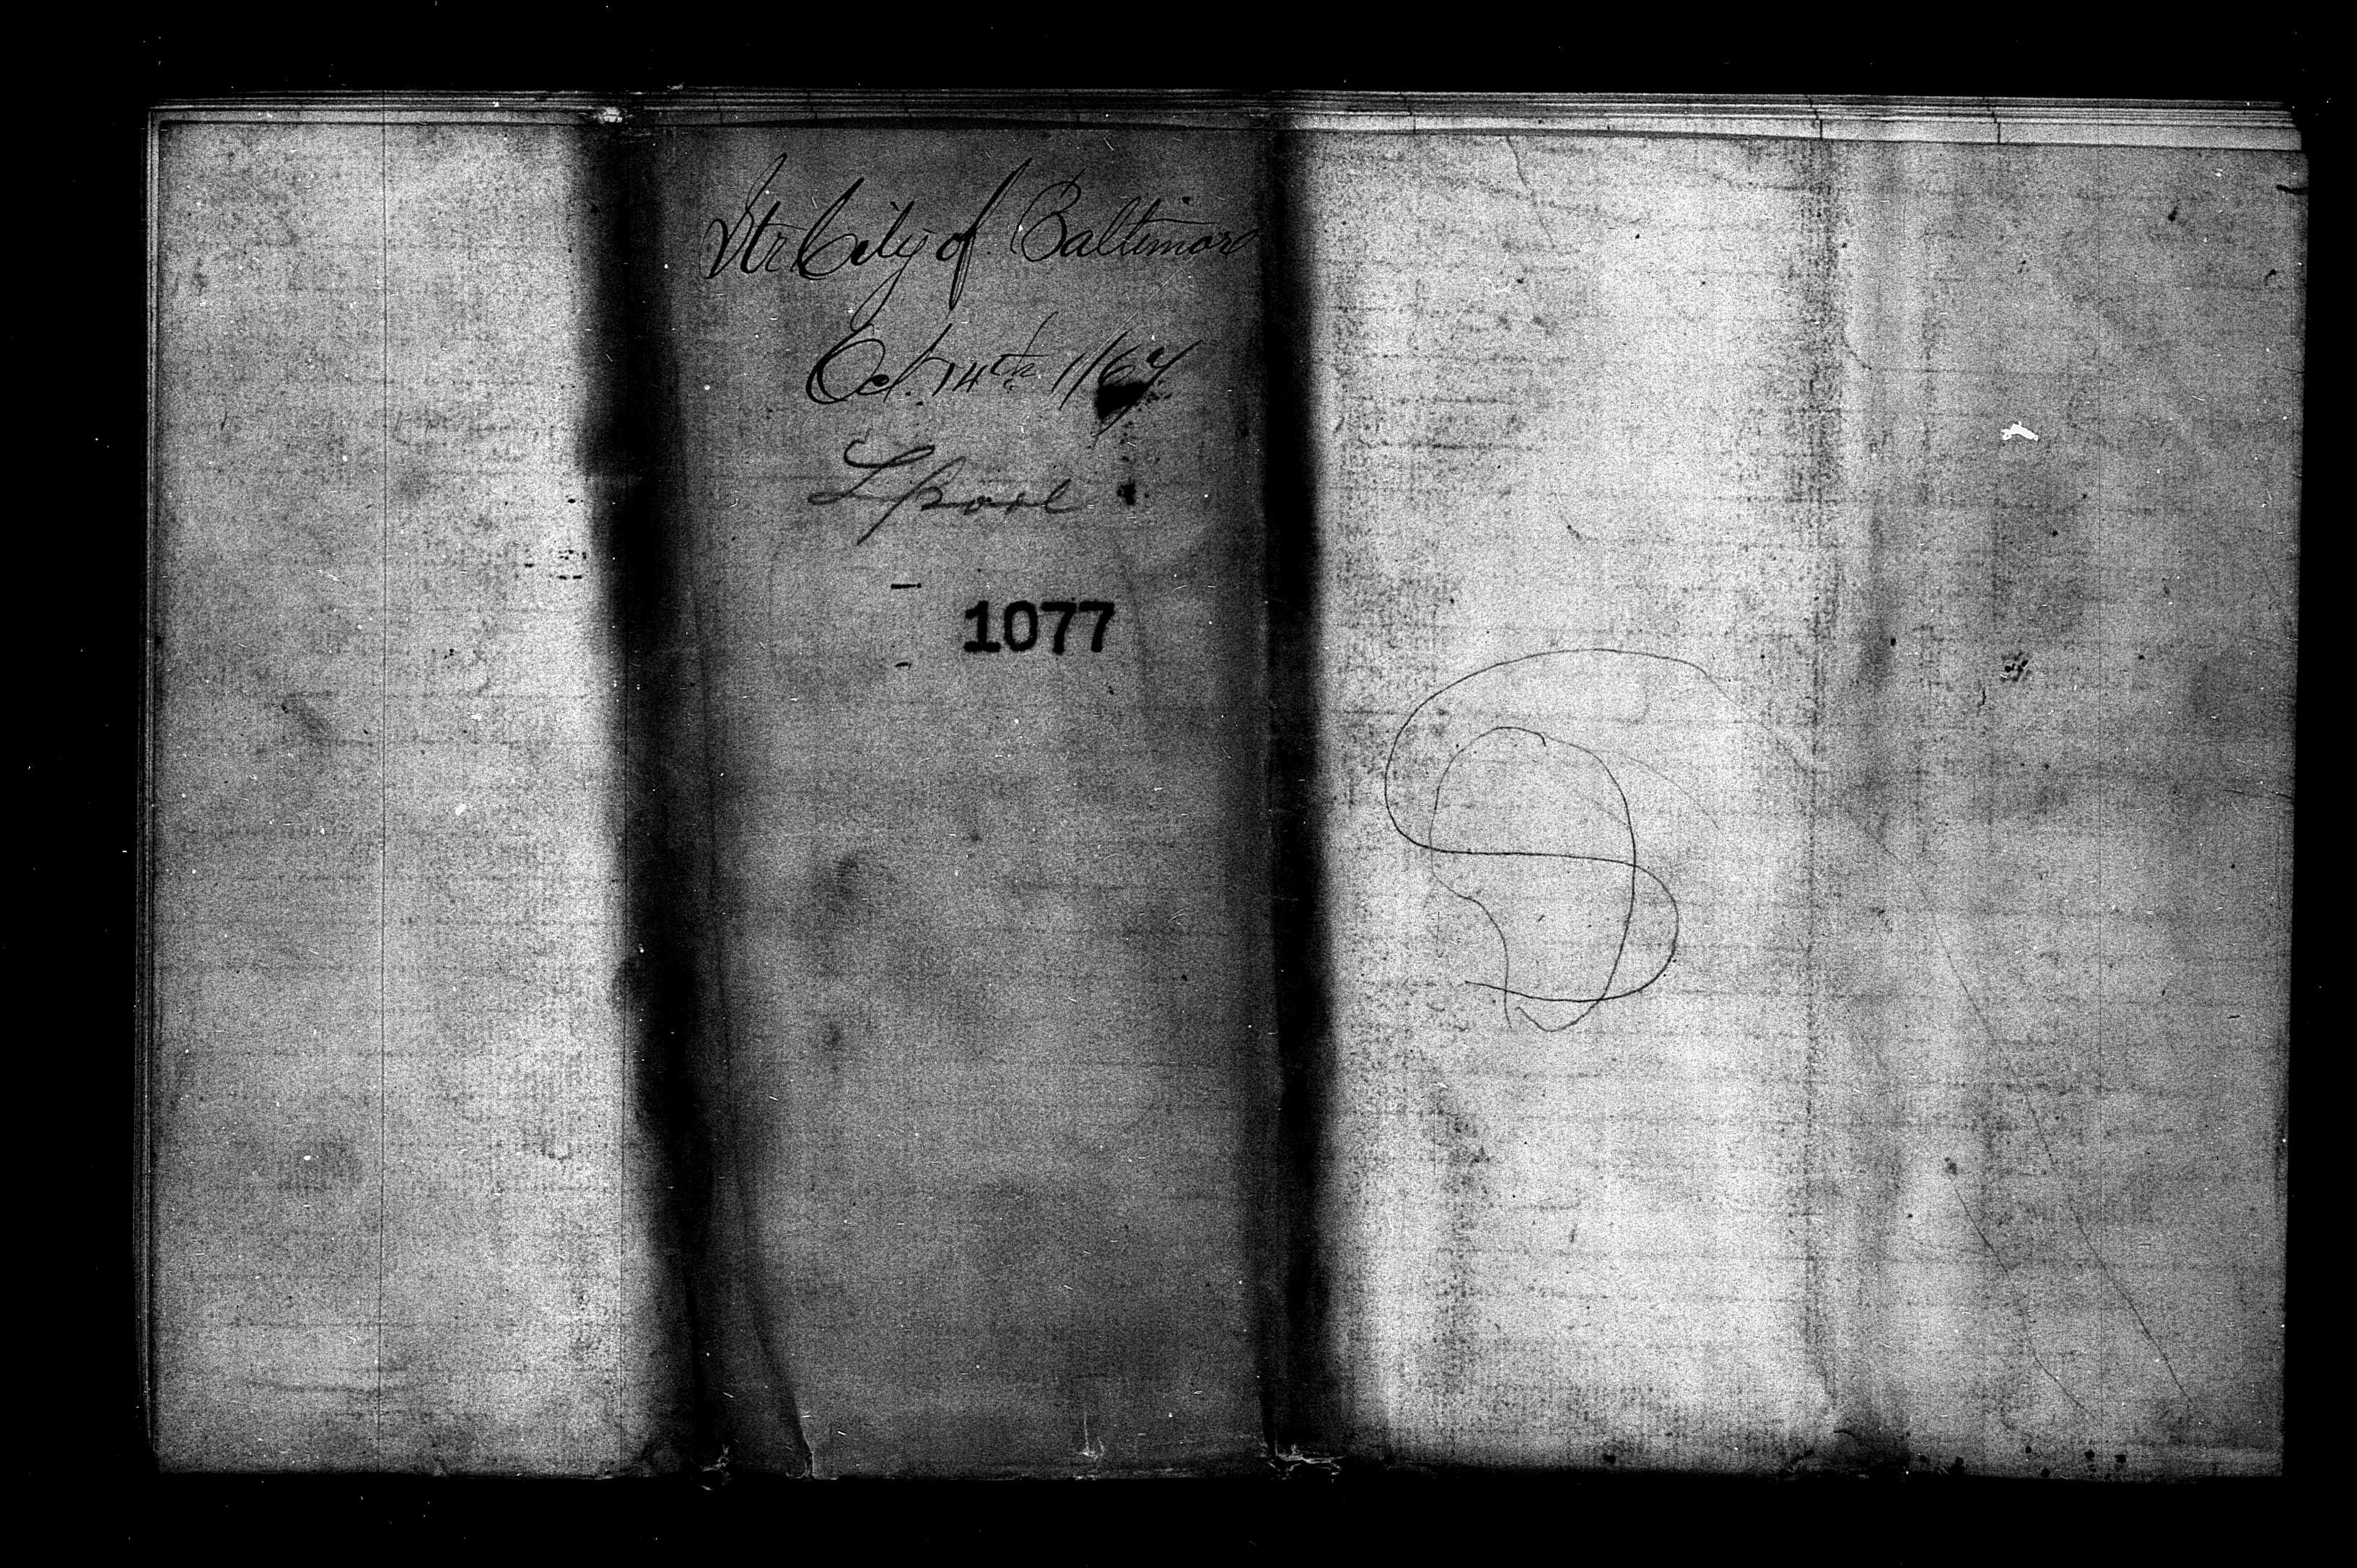 Str City of Baltimore
Oct. 14th 1/67
L'pool
1077